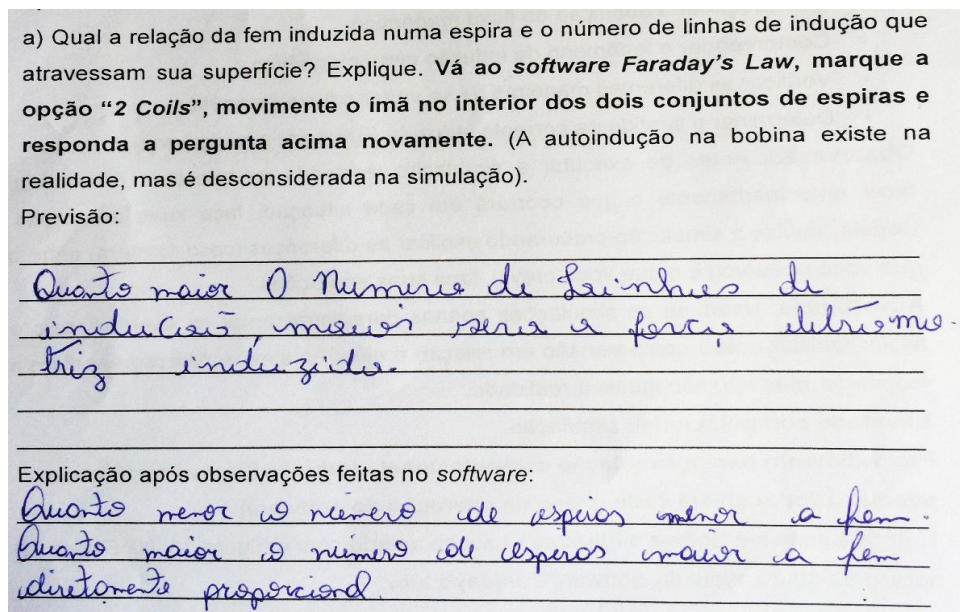 a) Qual a relação da fem induzida numa espira e o número de linhas de indução que
atravessam sua superfície? Explique. Vá ao software Faraday's Law, marque a
opção “2 Coils”, movimente o ímã no interior dos dois conjuntos de espiras e
responda a pergunta acima novamente. (A autoindução na bobina existe na
realidade, mas é desconsiderada na simulação).
Previsão:
Quanto maior O Numero de Linhas de
indução maior sera a força eletromo-
triz induzida.
Explicação após observações feitas no software:
Quanto menor o número de espiras menor a fem.
Quanto maior o número de espiras maior a fem
diretamente proporcional.